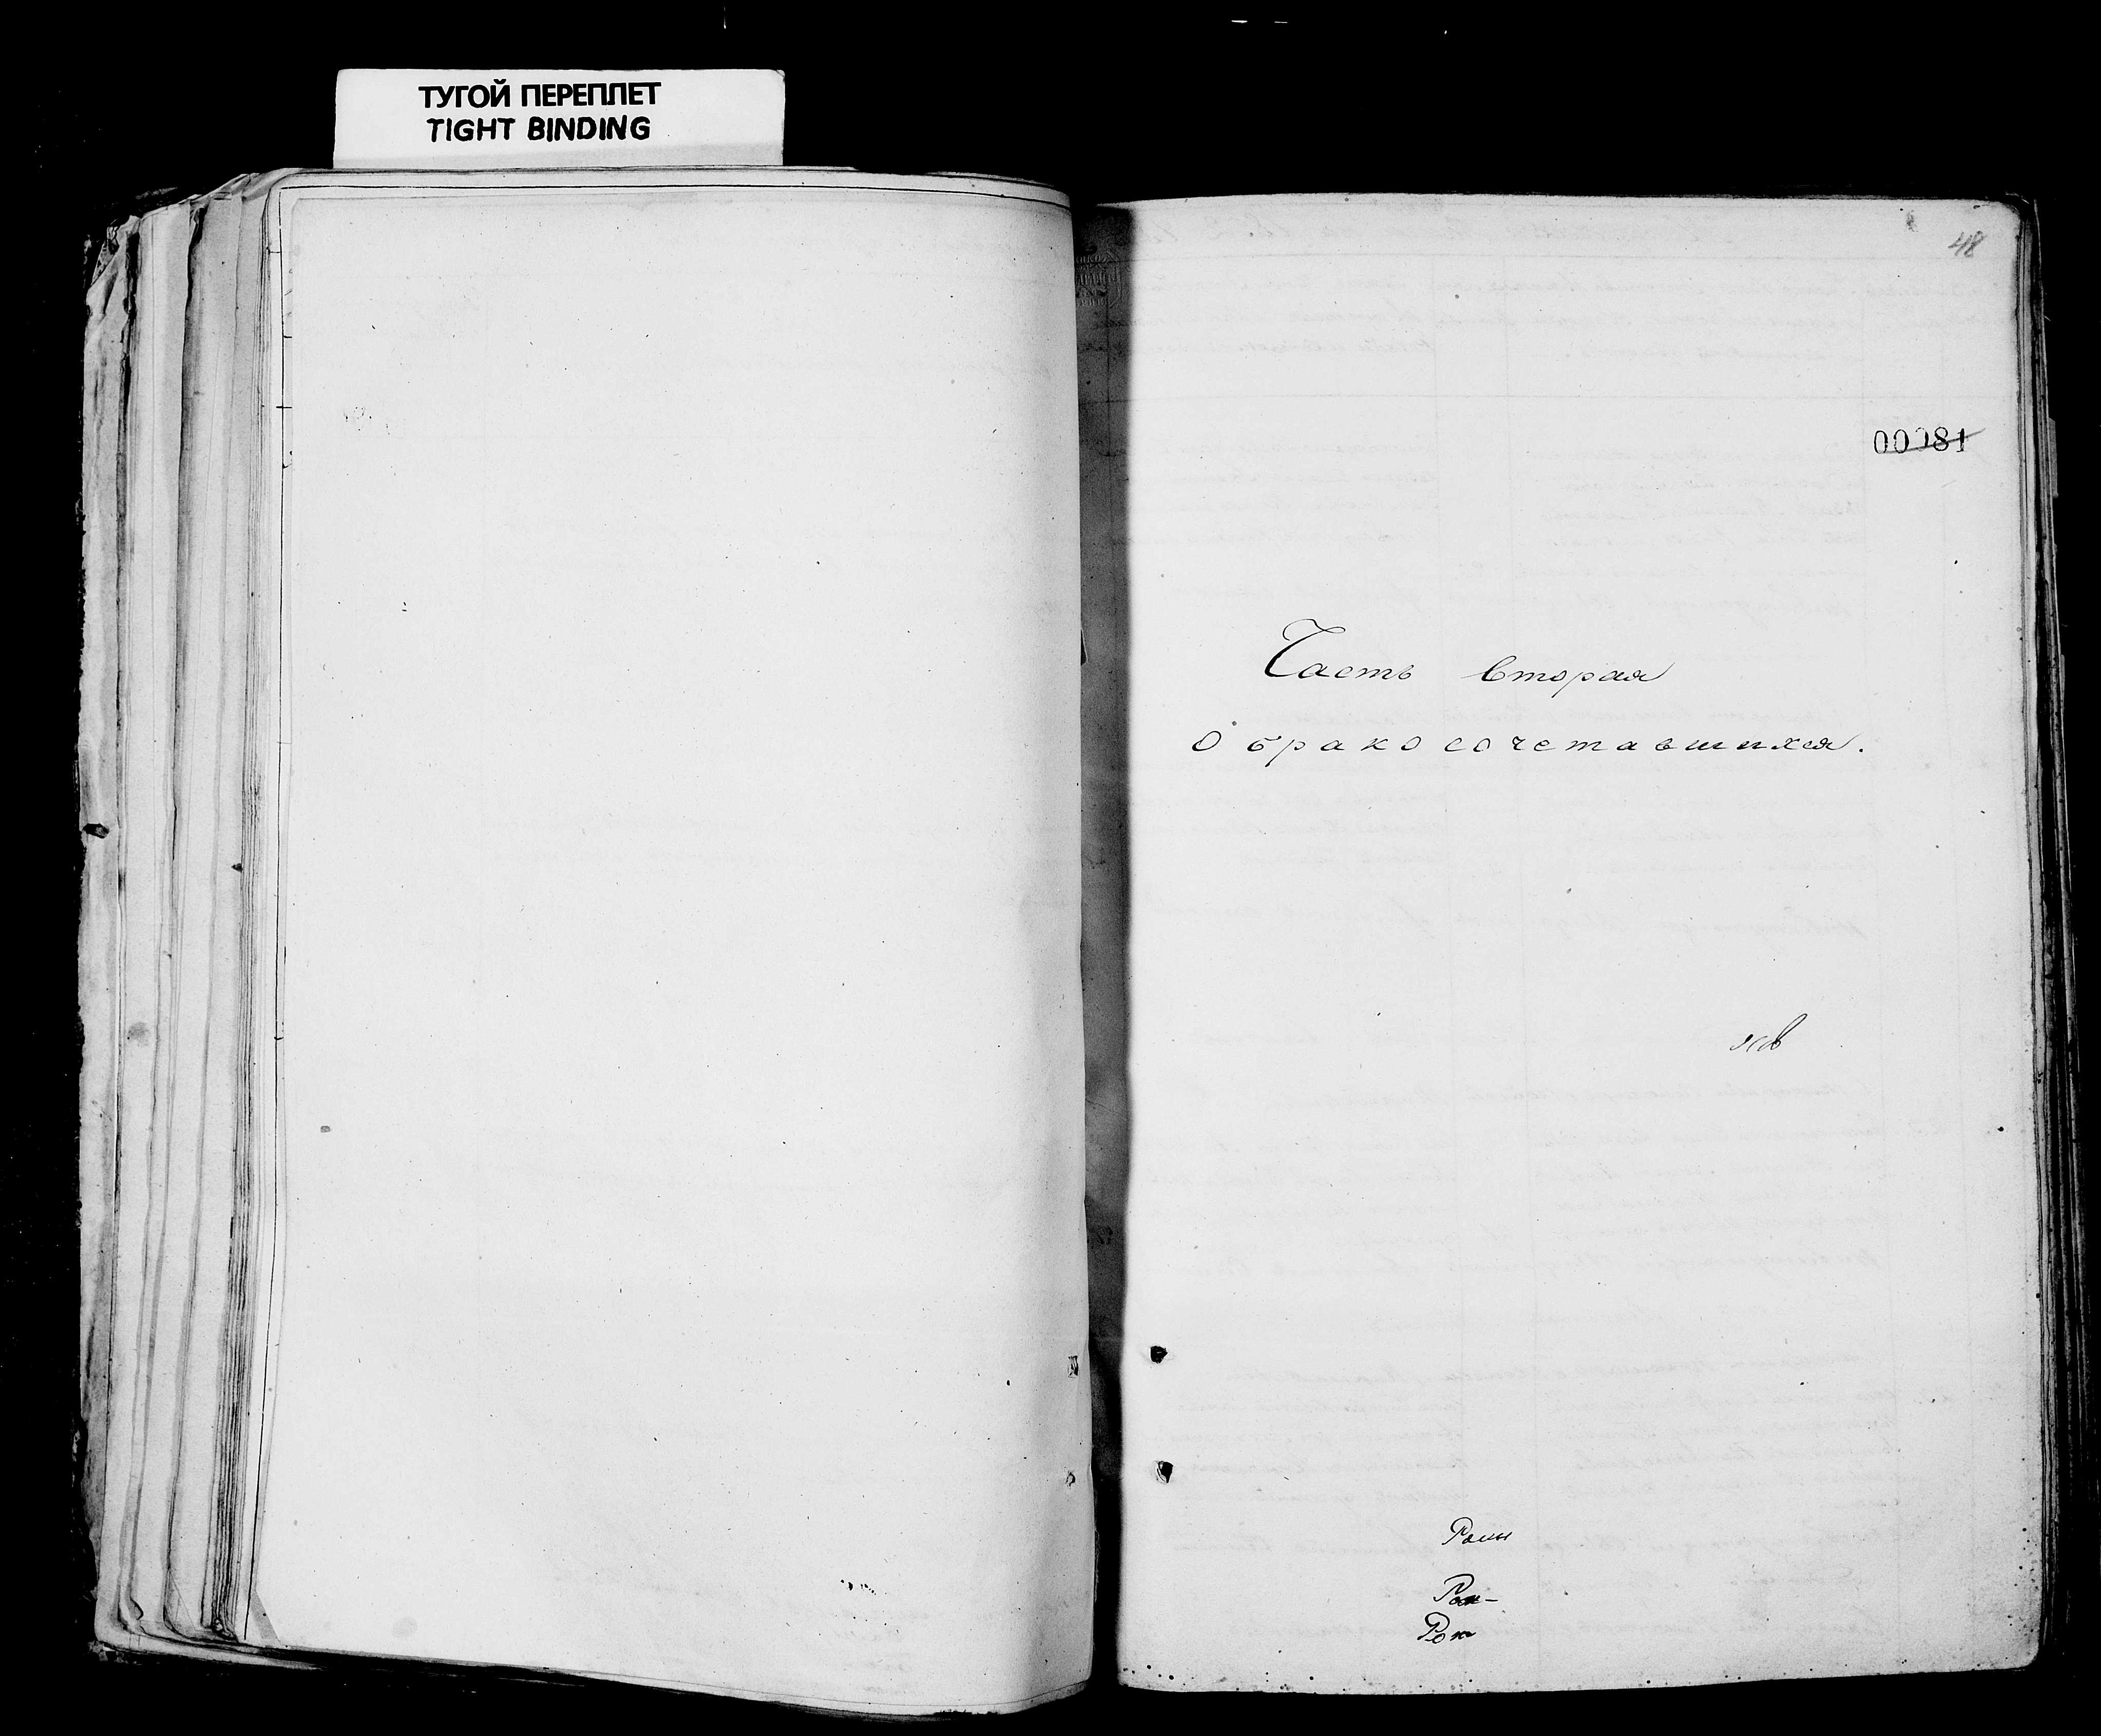 ТУГОЙ ПЕРЕПЛЕТ
TIGHT BINDING
48
00081
Часть вторая
О бракосочетавшихся.